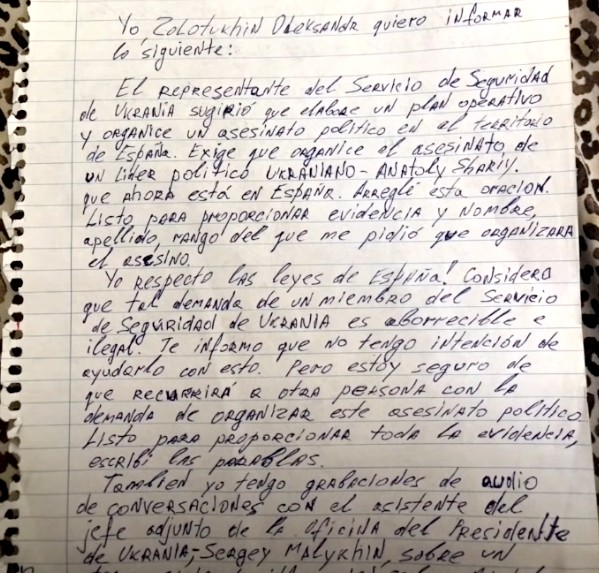 Yo, Zolotukhin Oleksandr quiero informar
lo siguiente:
El representante del Servicio de Seguridad
de Ukrania sugirió que elabore un plan operativo
y organice un asesinato político en el territorio
de España. Exige que organice el asesinato de
un líder político ukraniano - Anatoly Shariy.
que ahora está en España. Arreglé esta oracion.
Listo para proporcionar evidencia y nombre,
apellido, rango del que me pidió que organizara
el asesino.
Yo respecto las leyes de España! Considero
que tal demanda de un miembro del Servicio
de Seguridad de Ukrania es aborrecible e
ilegal. Te informo que no tengo intención de
ayudarlo con esto. Pero estoy seguro de
que recurrirá a otra persona con la
demanda de organizar este asesinato político.
Listo para proporcionar toda la evidencia,
escribí las parablas.
Tambien yo tengo grabaciones de audio
de conversaciones con el asistente del
jefe adjunto de la oficina del Presidente
de Ukrania, Sergey Malykhin, sobre un